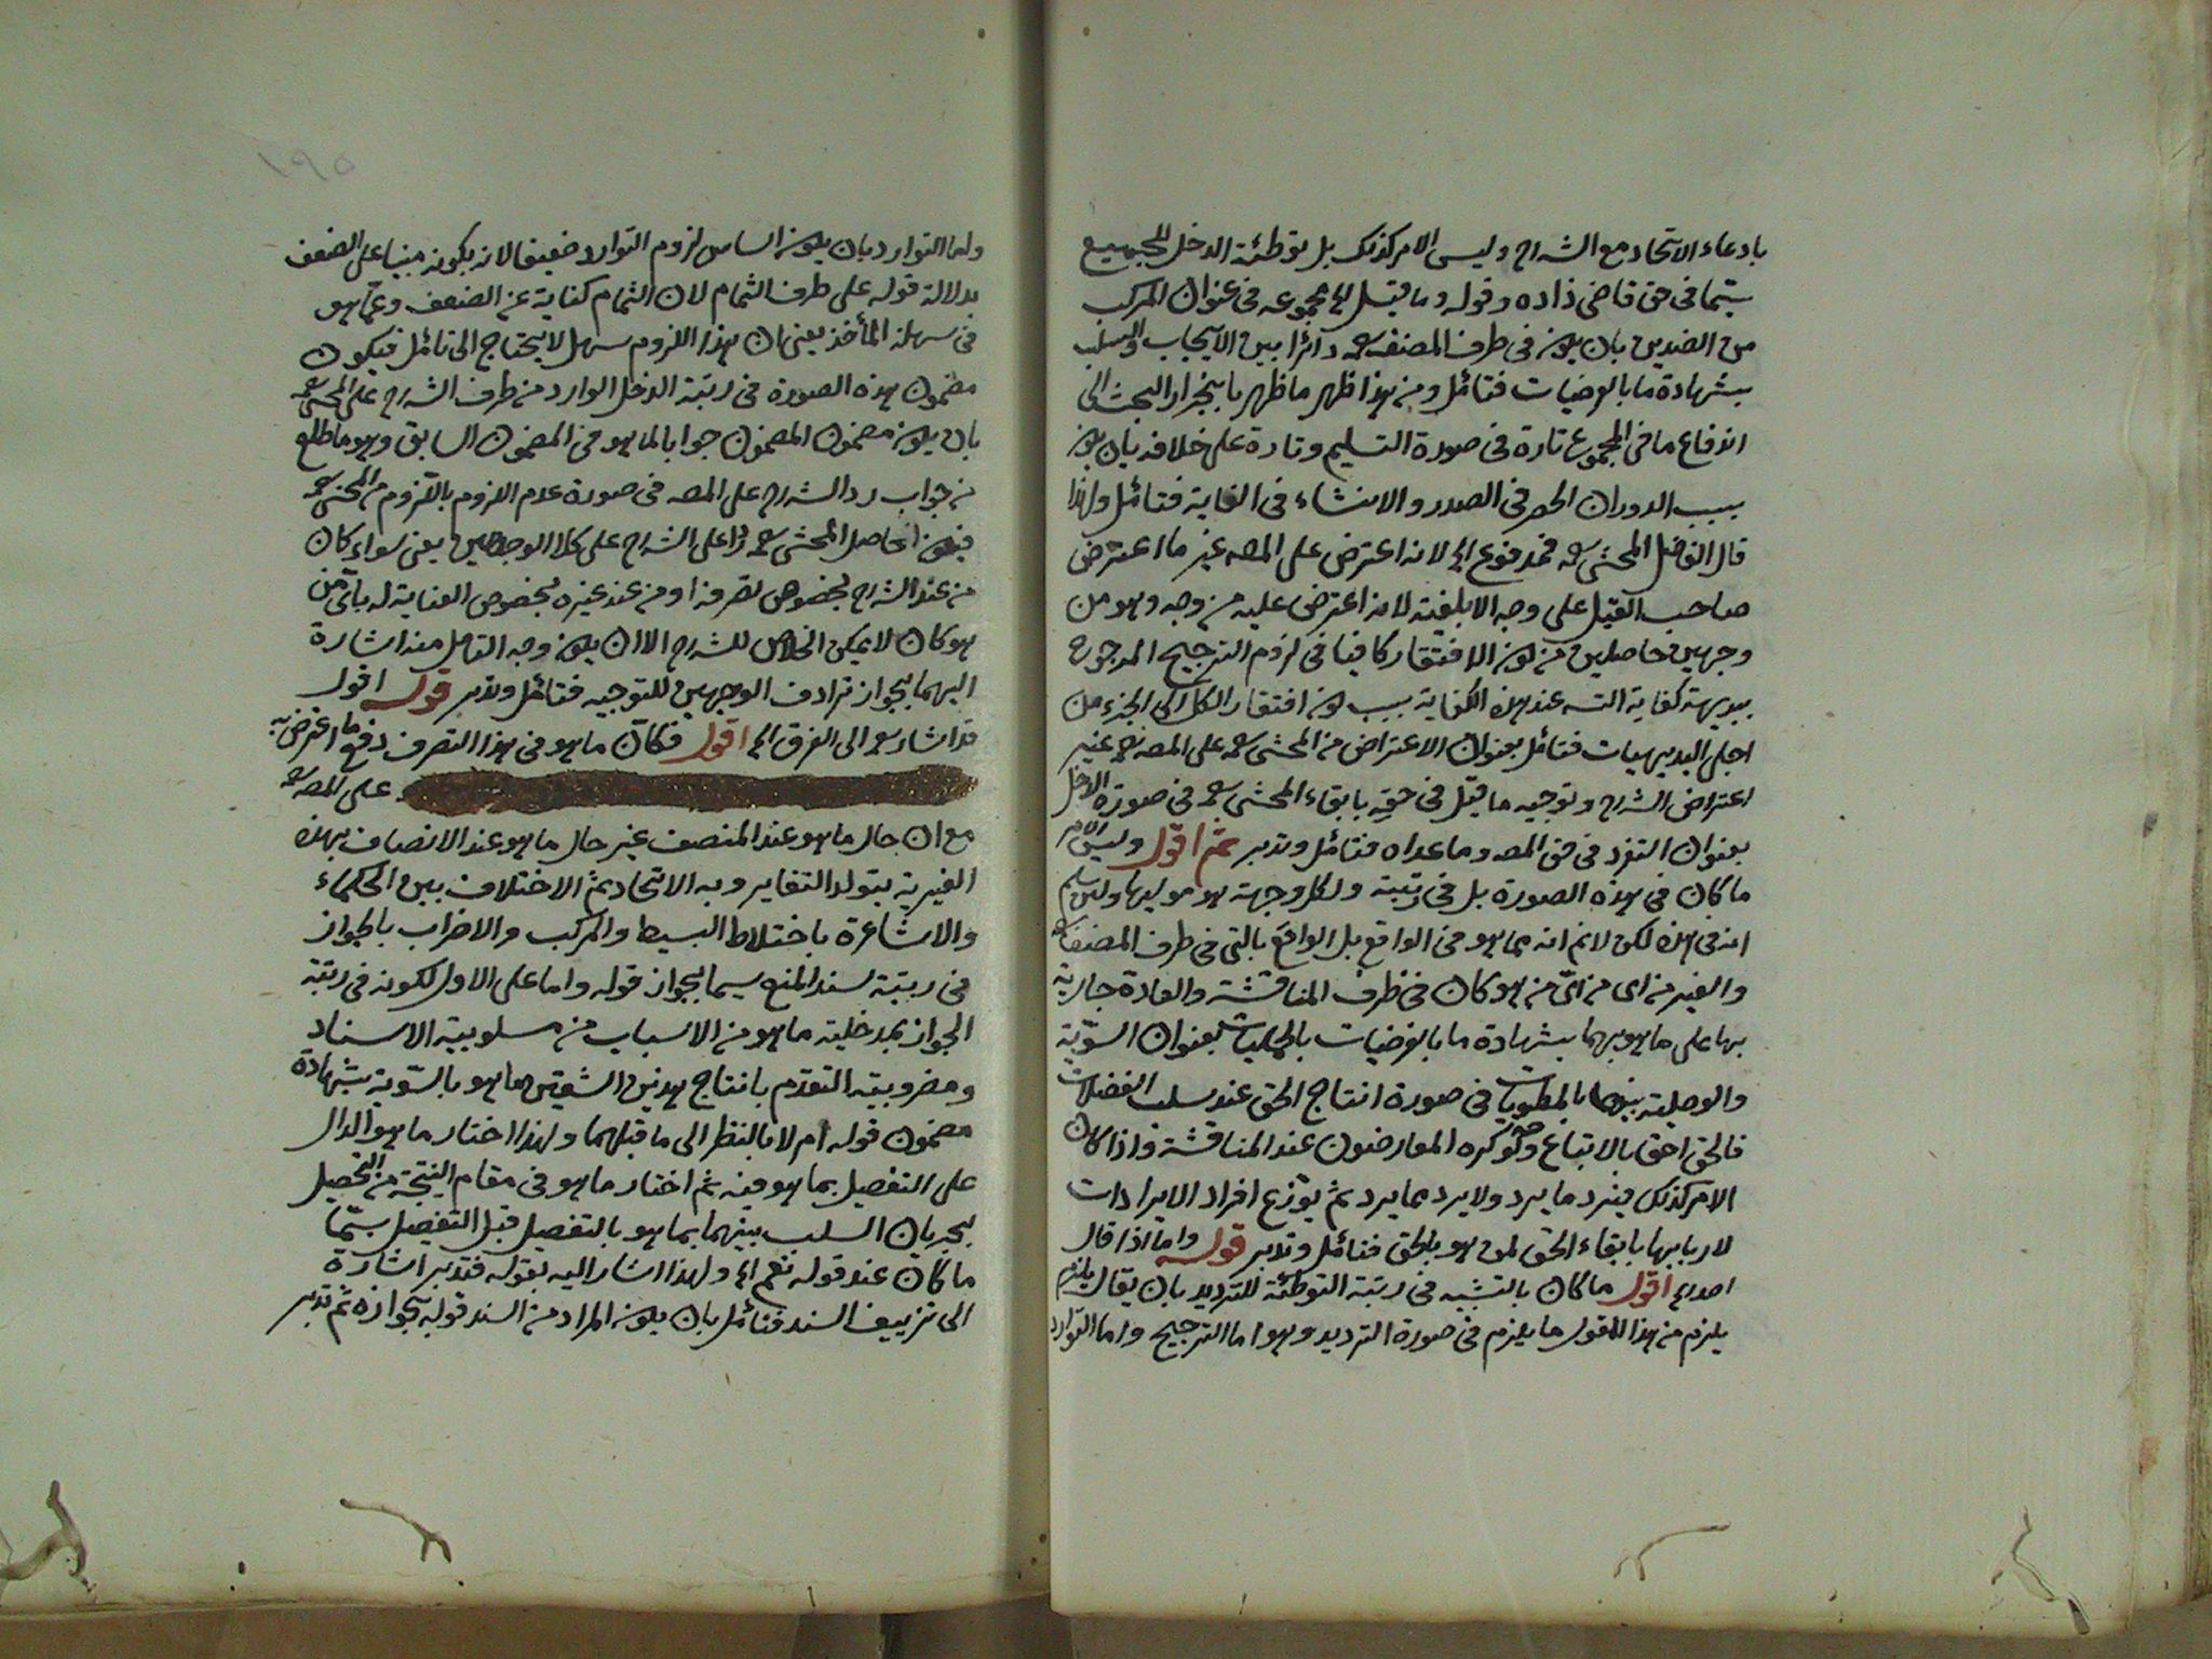 بادعاء الاتحاد مع الشارح وليس الامر كذلك بل توطئة الدخل للجميع
سيما فى حق قاضى زاده وقوله وما قيل الخ مجموعه فى عنوان المركب
من الضدين بان يكون فى طرف المصنف دائرا بين الايجاب والسلب
بشهادة ما بالوضيات فتأمل ومن هذا ظهر ما ظهر بانجرار البحث الى
اندفاع ما فى المجموع تارة فى صورة التسليم وتارة على خلافه بان يكون
سبب الدوران الحصر فى الصدر والانشاء فى الغاية فتأمل ولهذا
قال الفاضل المحشى فمدفوع الخ لانه اعترض على المصـ غير ما اعترض
صاحب القيل على وجه الابلغية لانه اعترض عليه من وجه وهو من
وجهين حاصلين من كون الافتقار كافيا فى لزوم الترجيح المرجوح
ببديهة كفاية التـسـ عند هذه الكفاية بسبب كون افتقار الكل الى الجزء من
اجلى البديهيات فتأمل بعنوان الاعتراض من المحشى على المصـ غير
اعتراض الشارح وتوجيه ما قيل فى حقه بابقاء المحشى فى صورة الدخل
بعنوان التفرد فى حق المصـ وما عداه فتأمل وتدبر ثم اقول وليس الامر
ما كان فى هذه الصورة بل فى رتبة ولكل وجهة هو موليها ولئن سلم
انه فى هذه لكن لانم انه مما هو فى الواقع بل الواقع بالتى فى طرف المصنف
والغير من اى من اىّ من هو كان فى طرف المناقشة والعادة جارية
بها على ما هو بهما بشهادة ما بالفرضيات بالجليات بعنوان السوية
والوصلية بينهما بالمطويات فى صورة انتاج الحق عند سلب الفضلات
فالحق احق بالاتباع ولو كره المعارضون عند المناقشة واذا كان
الامر كذلك فيرد ما يرد ولا يرد مما يرد ثم يوزع افراد الايرادات
لاربابها بابقاء الحق لمن هو بالحق فتأمل وتدبر قوله واما اذا قال
اقول ما كان بالتشبيه فى رتبة التوطئة للترديد بان يقال يلزم
يلزم من هذا القول ما يلزم فى صورة الترديد وهو اما الترجيح واما التوارد
واما التوارد بان يكون اساس لزوم التوارد ضعيفا لانه يكون مبنيا على الضعف
بدلالة قوله على طرف الثمام لان الثمام كناية عن الضعف وعما هو
فى سهلة المأخذ يعنى ان هذا اللزوم سهل لا يحتاج الى تأمل فيكون
مضمون هذه الصورة فى رتبة الدخل الوارد من طرف الشارح على المحشى
بان يكون مضمون المضمون جوابا لما هو فى المضمون السابق وهو ما طلع
من جواب رد الشارح على المصـ فى صورة عدم اللزوم باللزوم من المحشى
فيكون الحاصل المحشى رداً على الشارح على كلا الوجهين يعنى سواء كان
من عند الشارح بخصوص تصرفه او من عند غيره بخصوص العناية له بأى من
هو كان لا يمكن الخلاص للشارح الا ان يكون وجه التأمل منه اشارة
اليهما بجواز ترادف الوجهين للتوجيه فتأمل وتدبر قوله اقول
قد اشار الى الفرق الخ اقول فكان ما هو فى هذا التصرف دفع ما اعترض به
على المصـ
مع ان حال ما هو عند المنصف غير حال ما هو عند الانصاف بهذه
الغيرية يتولد التغاير وبه الاتحاد ثم الاختلاف بين الحكماء
والاشاعرة باختلاط البسيط والمركب والاضراب بالجواز
فى رتبة لسند المنع سيما بجواز قوله واما على الاول لكونه فى رتبة
الجواز بمدخلية ما هو من الاسباب من مسلوبية الاسناد
ومضروبية التقدم بانتاج هذين الشقين ما هو بالسوية بشهادة
مضمون قوله ام لا بالنظر الى ما قبلهما ولهذا اختار ما هو الدال
على التفصيل بما هو فيه ثم اختار ما هو فى مقام النتيجة من التحصيل
بجريان السلب بينهما بما هو بالتفصيل قبل التفصيل سيما
ما كان عند قوله نعم الخ ولهذا اشار اليه بقوله فتدبر اشارة
الى تزييف السند فتأمل بان يكون المراد من السند قوله بجوازه ثم تدبر